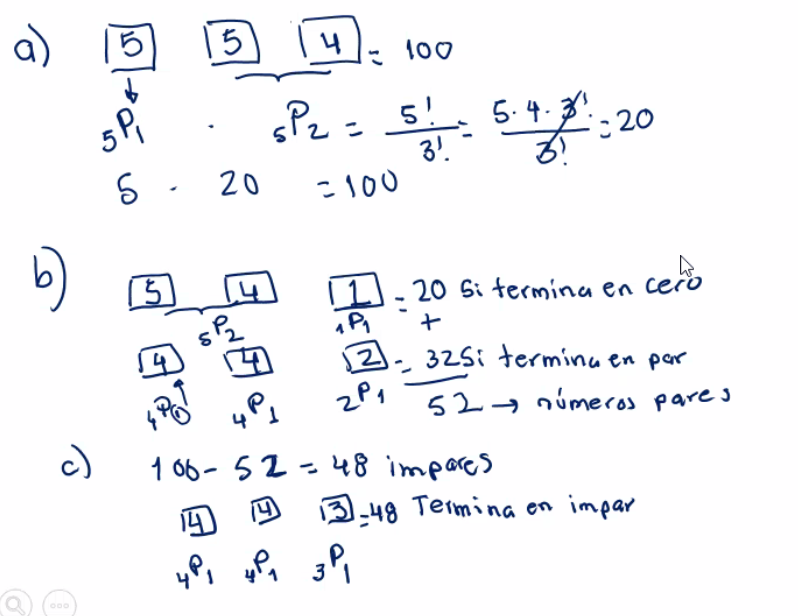 a) 5 5 4 = 100
5P1 . 5P2 = 5!/3! = 5.4.3!/3! = 20
5 . 20 = 100
b) 5 4 1 = 20 Si termina en cero
5P2 1P1 +
4 4 2 = 32 Si termina en par
4P1 4P1 2P1 52 → números pares
c) 100 - 52 = 48 impares
4 4 3 = 48 Termina en impar
4P1 4P1 3P1